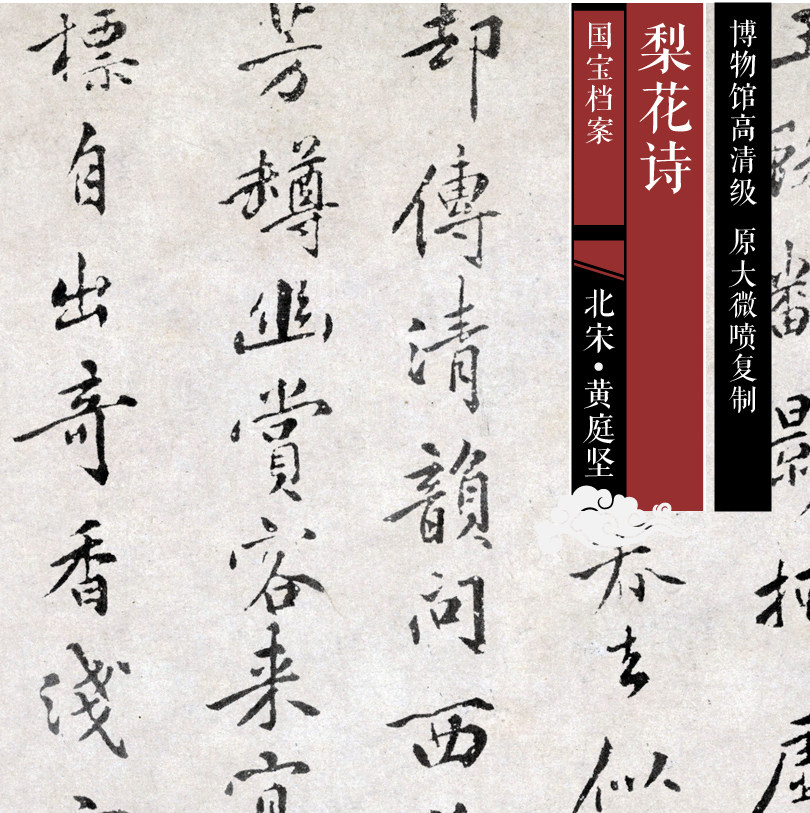 博物馆高清级 原大微喷复制
梨花诗
国宝档案
北宋·黄庭坚
去似
却傳清韻問西
芳罇幽賞客来
標自出奇香淺